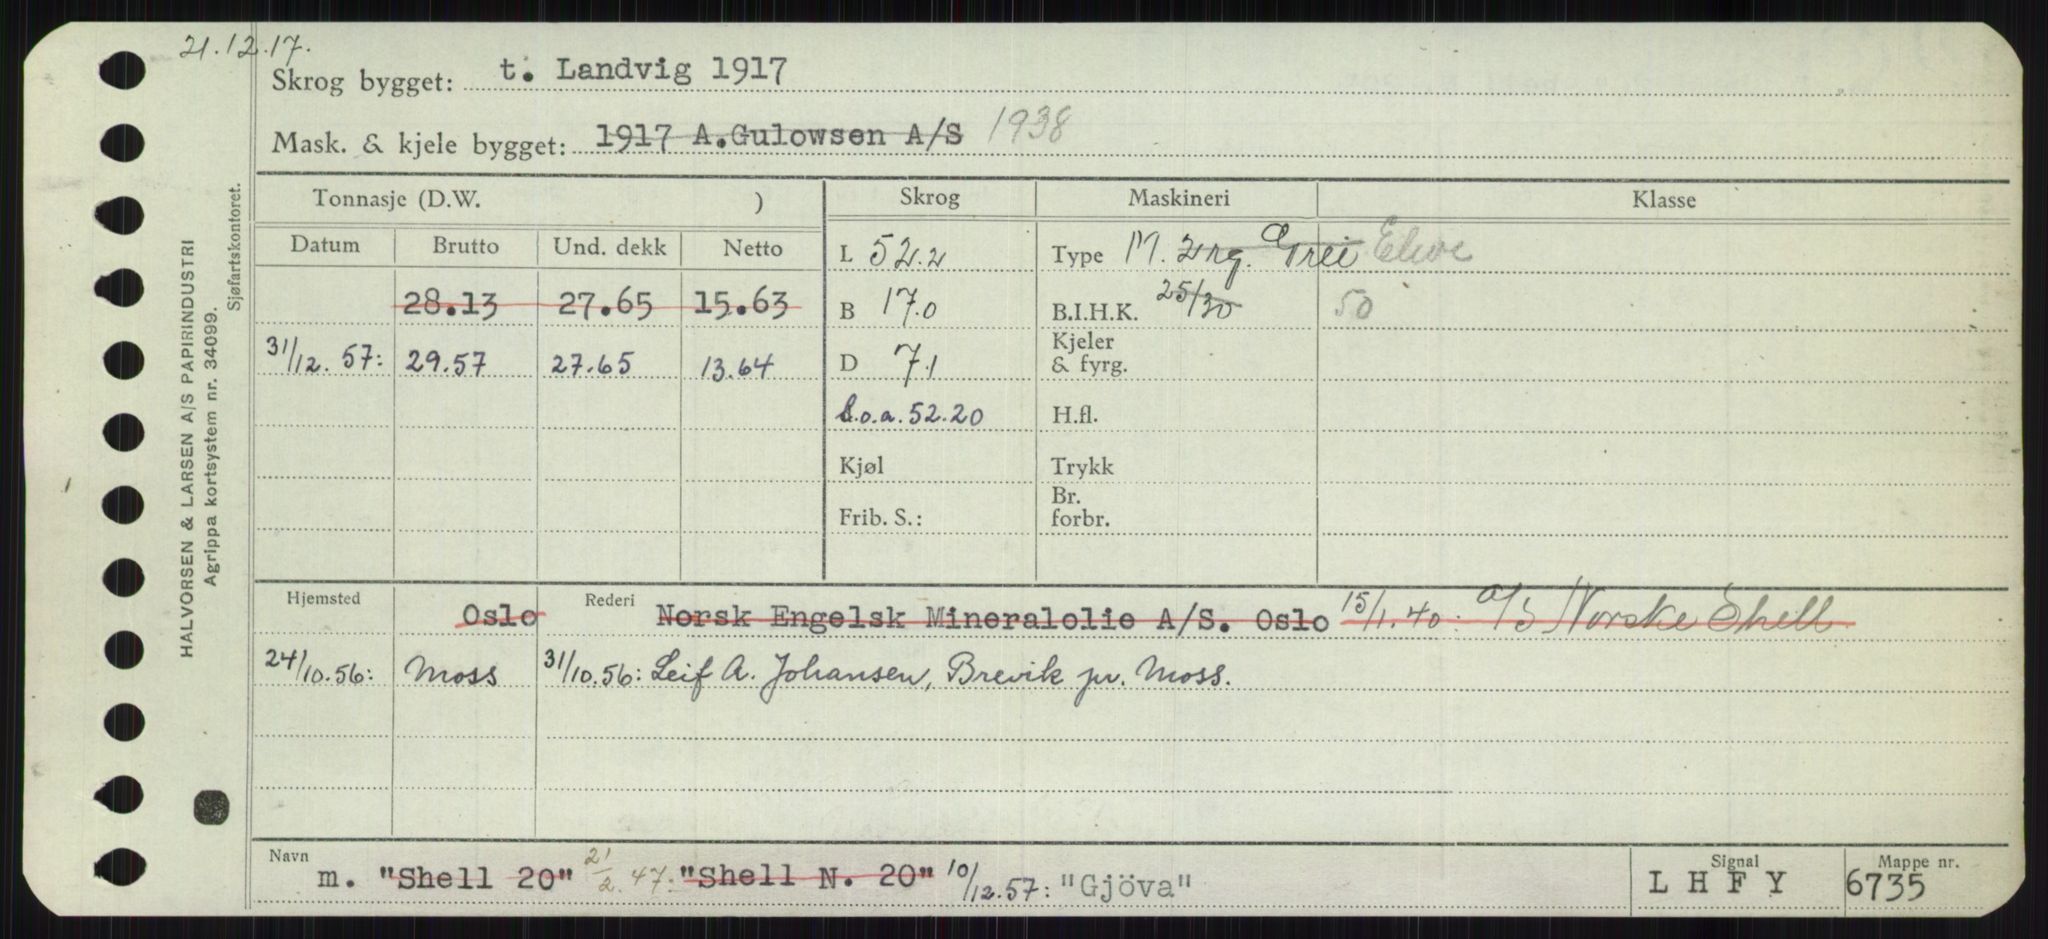 21.12.17.
Skrog bygget: t. Landvig 1917
Mask. & kjele bygget: 1917 A.Gulowsen A/S 1938
Tonnasje (D.W. ) Skrog Maskineri Klasse
Datum Brutto Und. dekk Netto L 52.2 Type M.
28.13 27.65 15.63 B 17.0 B.I.H.K. 25/30 50
31/12. 57: 29.57 27.65 13.64 D 7.1 Kjeler & fyrg.
L.o.a. 52.20 H.fl.
Kjøl Trykk
Frib. S.: Br. forbr.
Hjemsted Oslo Rederi Norsk Engelsk Mineralolie A/S. Oslo 15/1.40: a/s Norske Shell
24/10.56: Moss 31/10.56: Leif A. Johansen, Brevik pr. Moss.
Navn m. "Shell 20" 21/2.47: "Shell N. 20" 10/12.57: "Gjöva" Signal L H F Y Mappe nr. 6735
HALVORSEN & LARSEN A/S PAPIRINDUSTRI
Agrippa kortsystem nr. 34099.
Sjøfartskontoret.